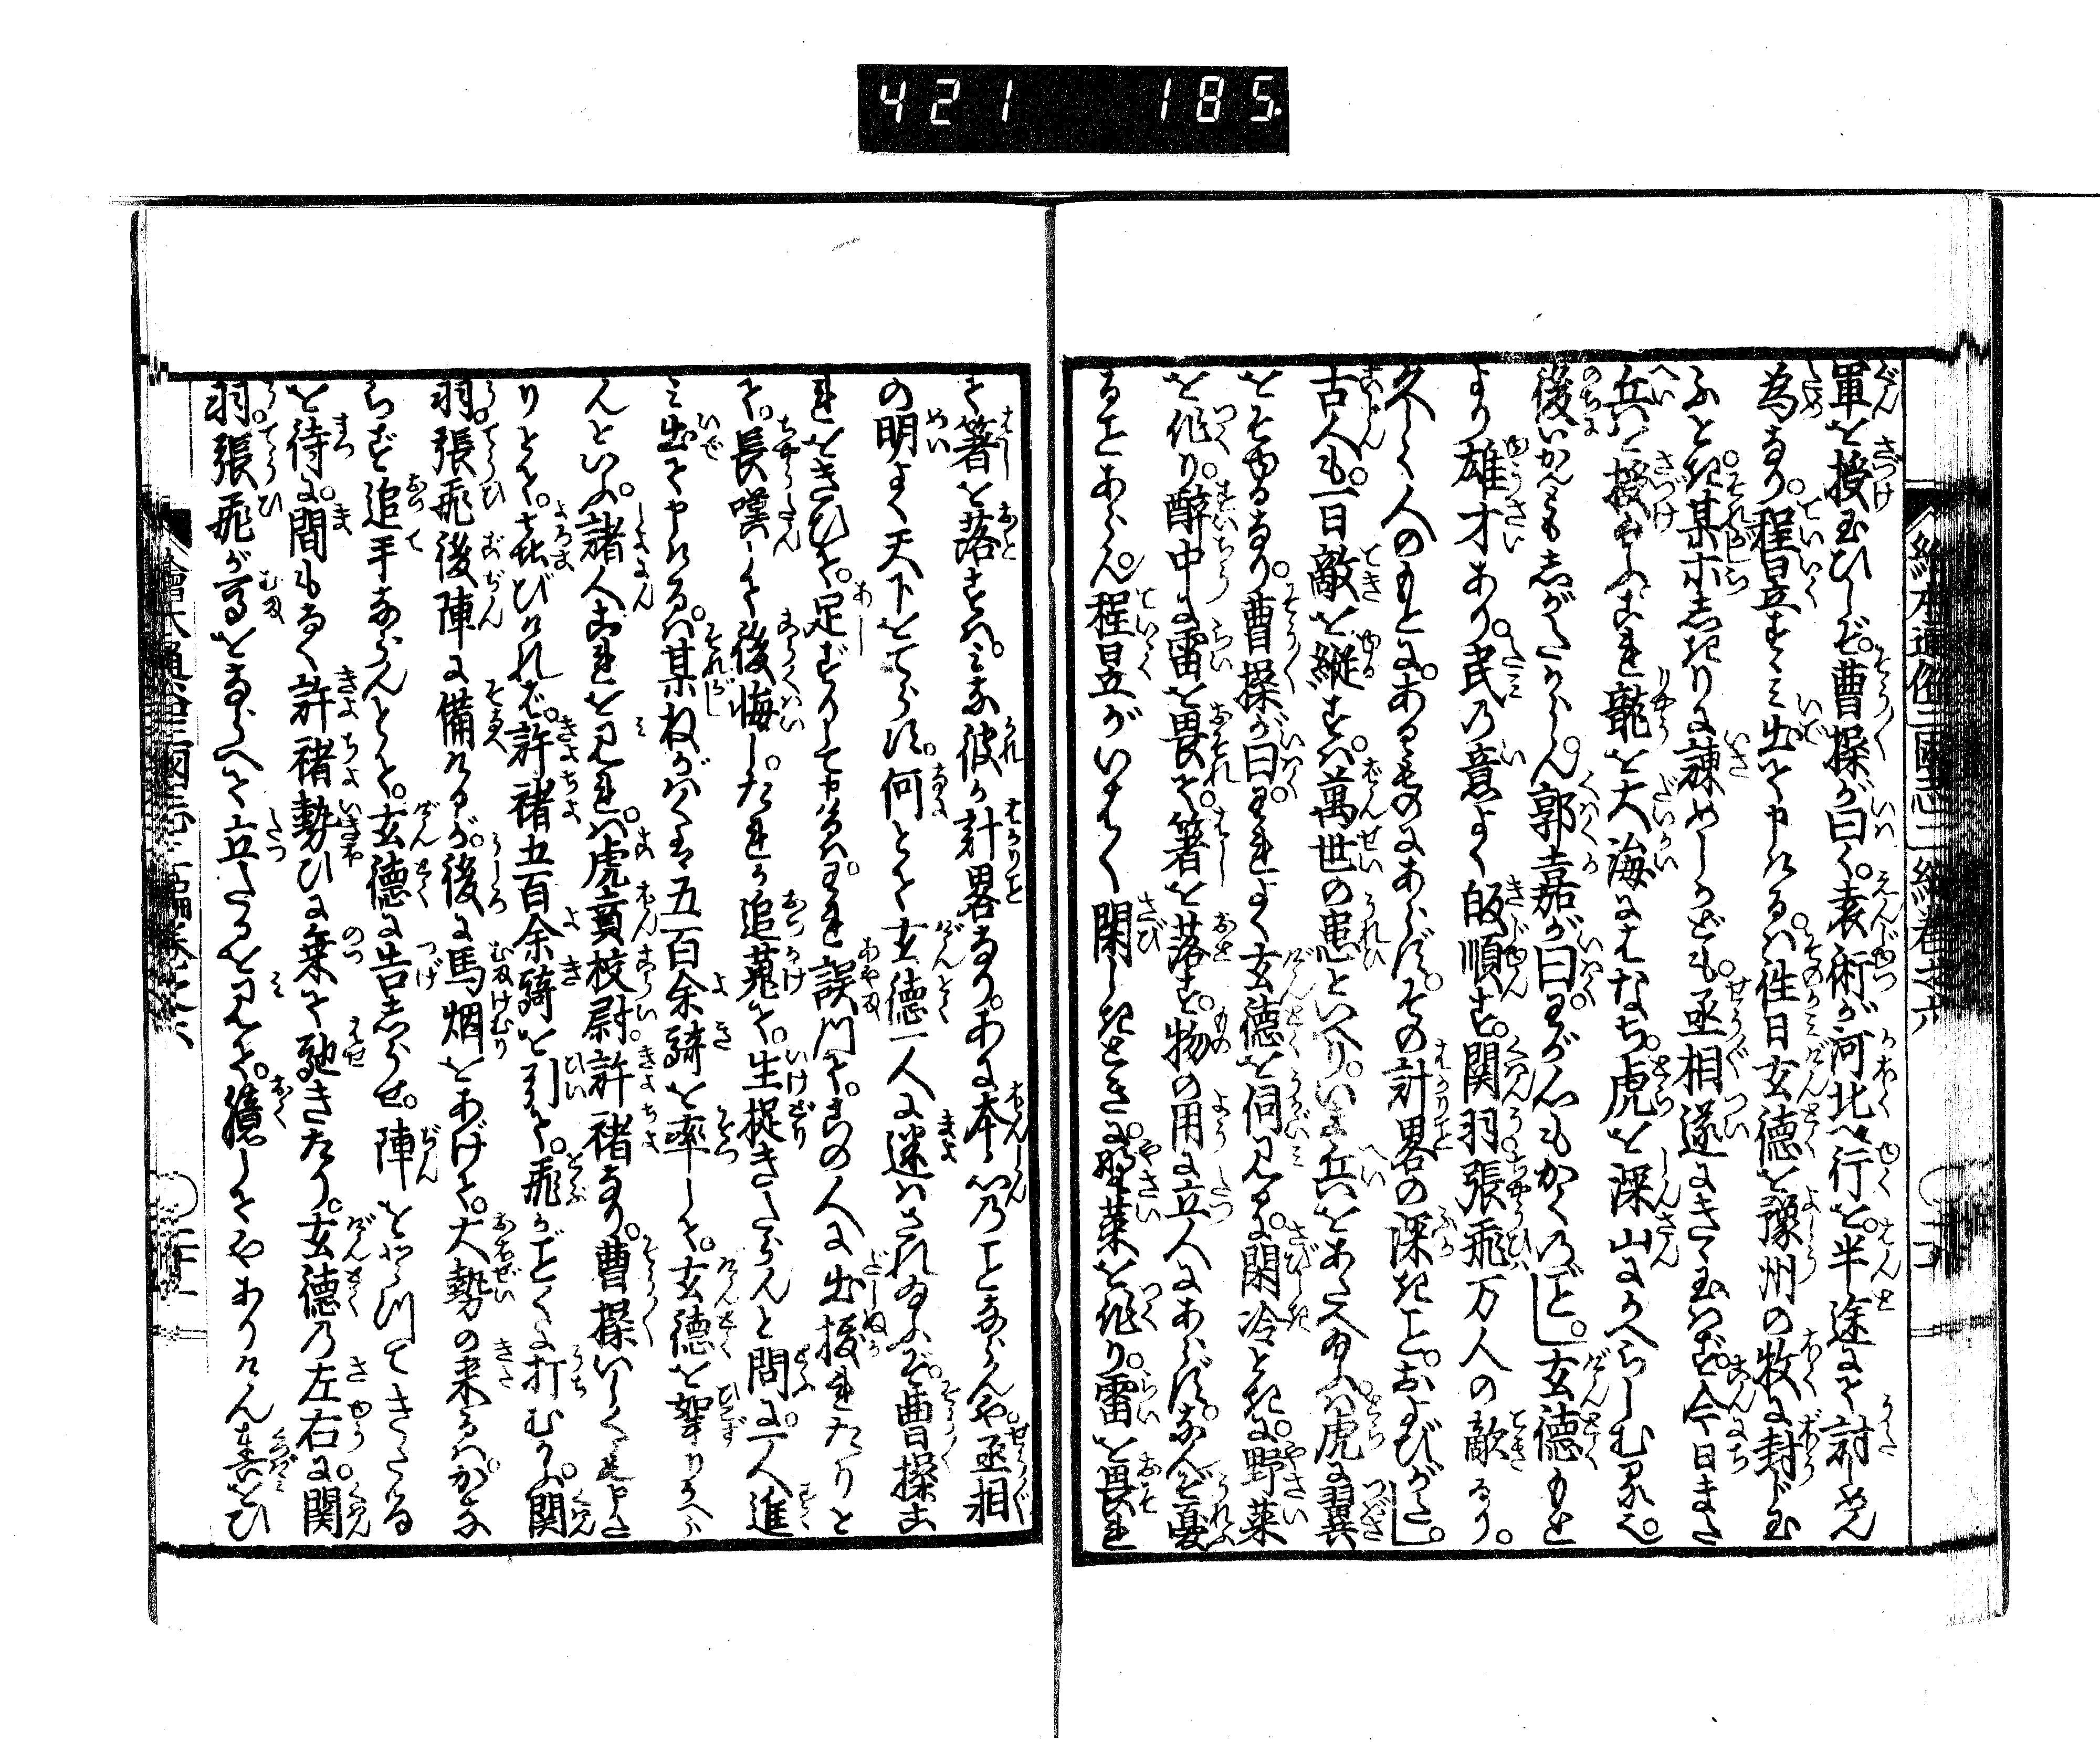 421 185.
絵本通俗三國志二編巻之六
軍を授玉ひしぞ。曹操が曰く。袁術が河北へ行を。半途にて討しめん
為なり。程昱すゝみ出て申けるは。往日玄徳を豫州の牧に封じ玉
ふとき。某ホしきりに諫めしかども。丞相遂にきゝ玉はず。今日また
兵を授玉ふはこれ龍を大海にはなち。虎を深山にかへらしむる也。
後いかんともしがたからん。郭嘉が曰。わが心もかくのごとし。玄徳もと
より雄才あり。民の意よく皈順す。関羽張飛万人の敵なり。
久しく人のもとに。あるものにあらず。その計畧の深きこと。およびがたし。
古人も。一日敵を縦せば。萬世の患といへり。いま兵をあたへ玉ふは虎に翼
をそゆるなり。曹操が曰。われよく玄徳を伺見るに。閑冷ときに。野菜
を作り。醉中に雷を畏て。箸を落す。物の用に立人にあらず。なんぞ憂
ることあらん。程昱がいはく閑しきときに。野菜を作り。雷を畏れ
て箸を落すは。みな彼が計畧なり。あに本心のことならんや。丞相
の明よく天下をてらす。何とて玄徳一人に迷はされ玉ふぞ。曹操こ
れをきひて。足ずりして申は。われ誤れて。この人に出抜れたりと
て。長嘆して後悔し。たれか追蒐て。生捉きたらんと問に。一人進
み出て申けるは。某ねがはくは五百余騎を率して。玄徳を挈りかへら
んといふ。諸人これを見れば。虎賁校尉。許褚なり。曹操いしくも申た
りとて。喜びければ。許褚五百余騎を引て。飛がごとくに打むかふ。関
羽。張飛後陣に備けるが。後に馬烟をあげて。大勢の来るは。かな
らず追手ならんとて。玄徳に告しらせ。陣をとつてきたる
を待に。間もなく許褚勢ひに乗て馳きたり。玄徳の左右に。関
羽。張飛が馬をならべて立たるを見て。臆してやありけん。轡をひ
繪本通俗三國志二編巻之六